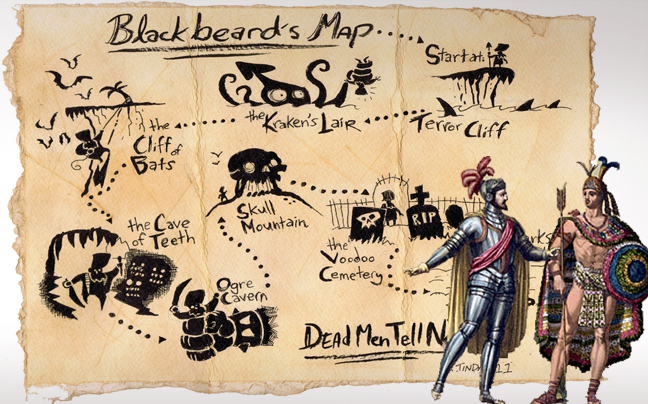 Blackbeard's Map
Start at:
the Kraken's Lair
Terror Cliff
the
Cliff of
Bats
Skull
Mountain
RIP
the Cave
of Teeth
the
Voodoo
Cemetery
Ogre
Cavern
Dead Men Tell N